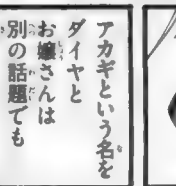 アカギという名を
ダイヤと
お嬢さんは
別の話題でも